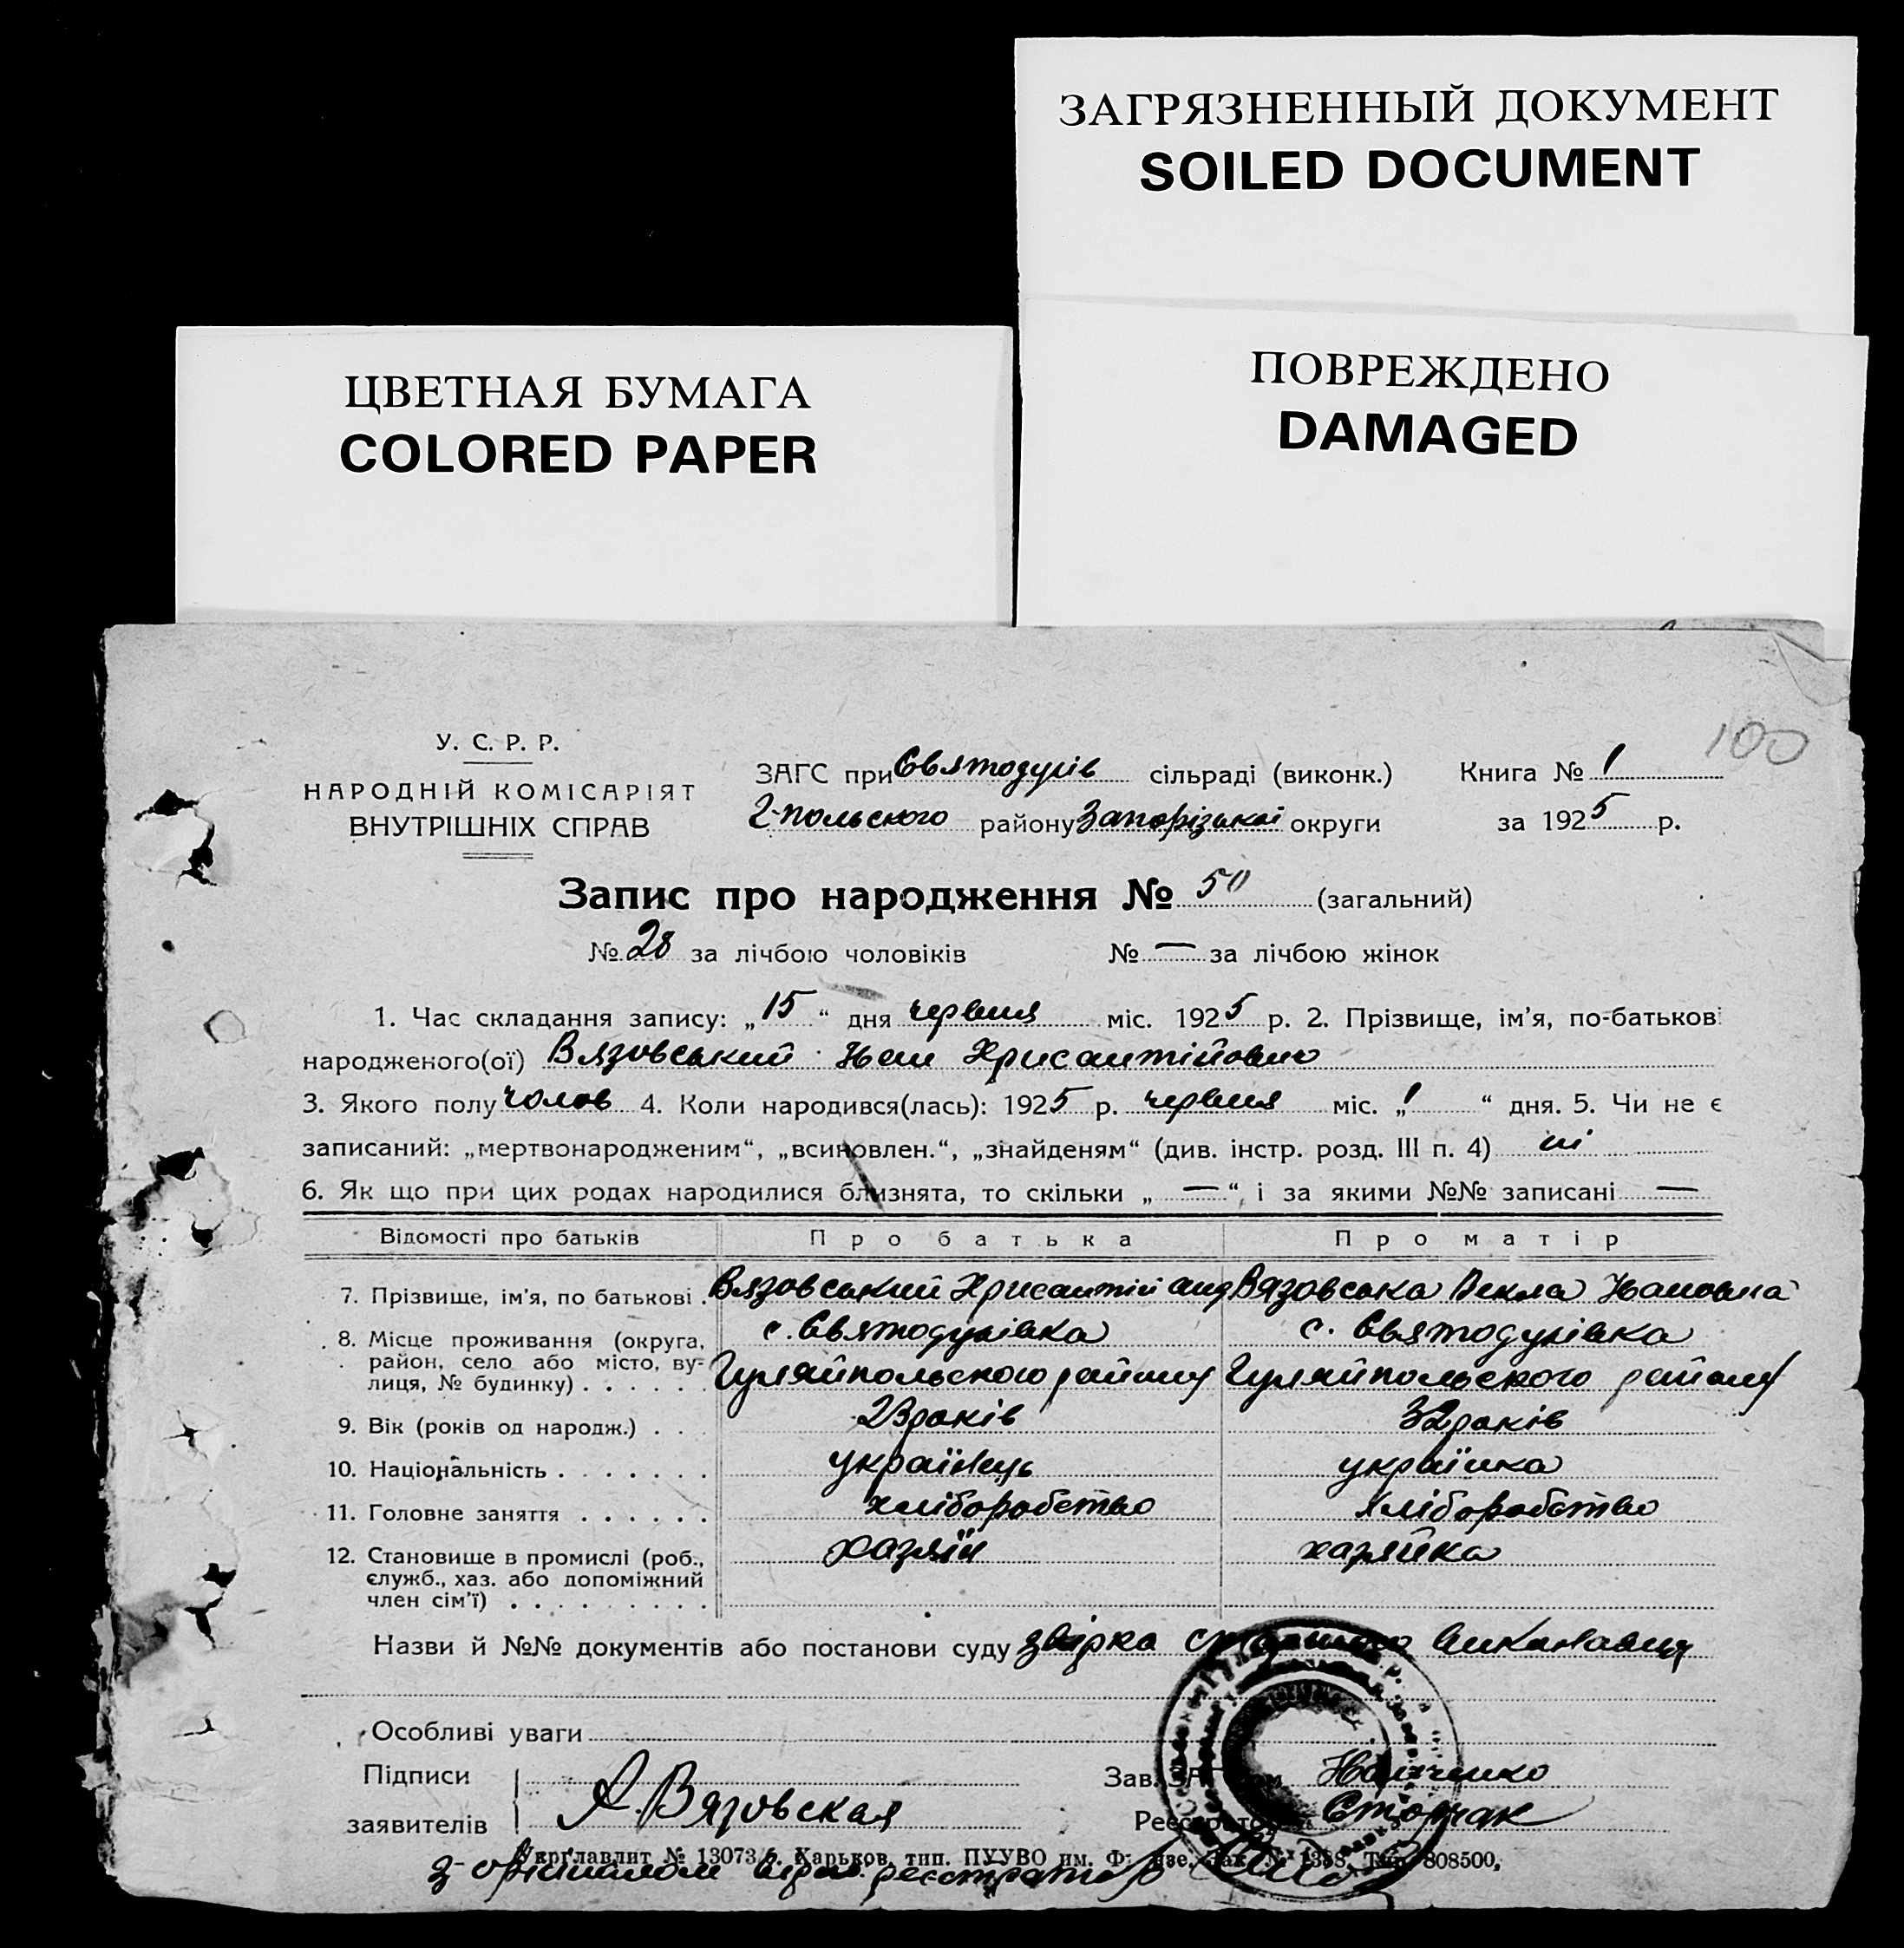 ЗАГРЯЗНЕННЫЙ ДОКУМЕНТ
SOILED DOCUMENT
ЦВЕТНАЯ БУМАГА
COLORED PAPER
ПОВРЕЖДЕНО
DAMAGED
100
У. С. Р. Р.
НАРОДНІЙ КОМІСАРІЯТ
ВНУТРІШНІХ СПРАВ
ЗАГС при Святодухів сільраді (виконк.) Книга № 1
Г-польского району Запорізької округи за 1925 р.
Запис про народження № 50 (загальний)
№ 28 за лічбою чоловіків № — за лічбою жінок
1. Час складання запису: „15“ дня червня міс. 1925 р. 2. Прізвище, ім'я, по-батькові
народженого(ої) Вязовський Хрисантійович
3. Якого полу чолов 4. Коли народився(лась): 1925 р. червня міс. „1“ дня. 5. Чи не є
записаний: „мертвонародженим“, „всиновлен.“, „знайденям“ (див. інстр. розд. III п. 4) ні
6. Як що при цих родах народилися близнята, то скільки „ — “ і за якими №№ записані —
Відомості про батьків Про батька Про матір
7. Прізвище, ім'я, по батькові . Вязовський Хрисантій Анд Вязовська Векла Івановна
8. Місце проживання (округа, с. Святодухівка с. Святодухівка
район, село або місто, ву-
лиця, № будинку) . . . . . . Гуляйпольского району Гуляйпольского району
9. Вік (років од народж.) . . . 23 років 32 років
10. Національність . . . . . . . українець українка
11. Головне заняття . . . . . . хліборобство хліборобство
12. Становище в промислі (роб., хазяїн хазяйка
служб., хаз. або допоміжний
член сім'ї) . . . . . . . . .
Назви й №№ документів або постанови суду звірка
Особливі уваги
Підписи
заявителів А. Вязовская
Зав. ЗАГСом
Реєстратор
Укрглавлит № 13073/6. Харьков, тип. ПУУВО им. Ф. Зак. № 1388. 808500.
З оригіналом вірно реєстратор